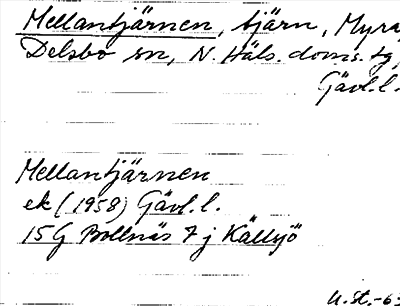 Mellantjärnen, tjärn, Myra,
Delsbo sn, N. Häls. doms. tg,
Gävl. l.
Mellantjärnen
ek (1958) Gävl. l.
15G Bollnäs 7 j Källsjö
U. St. -63